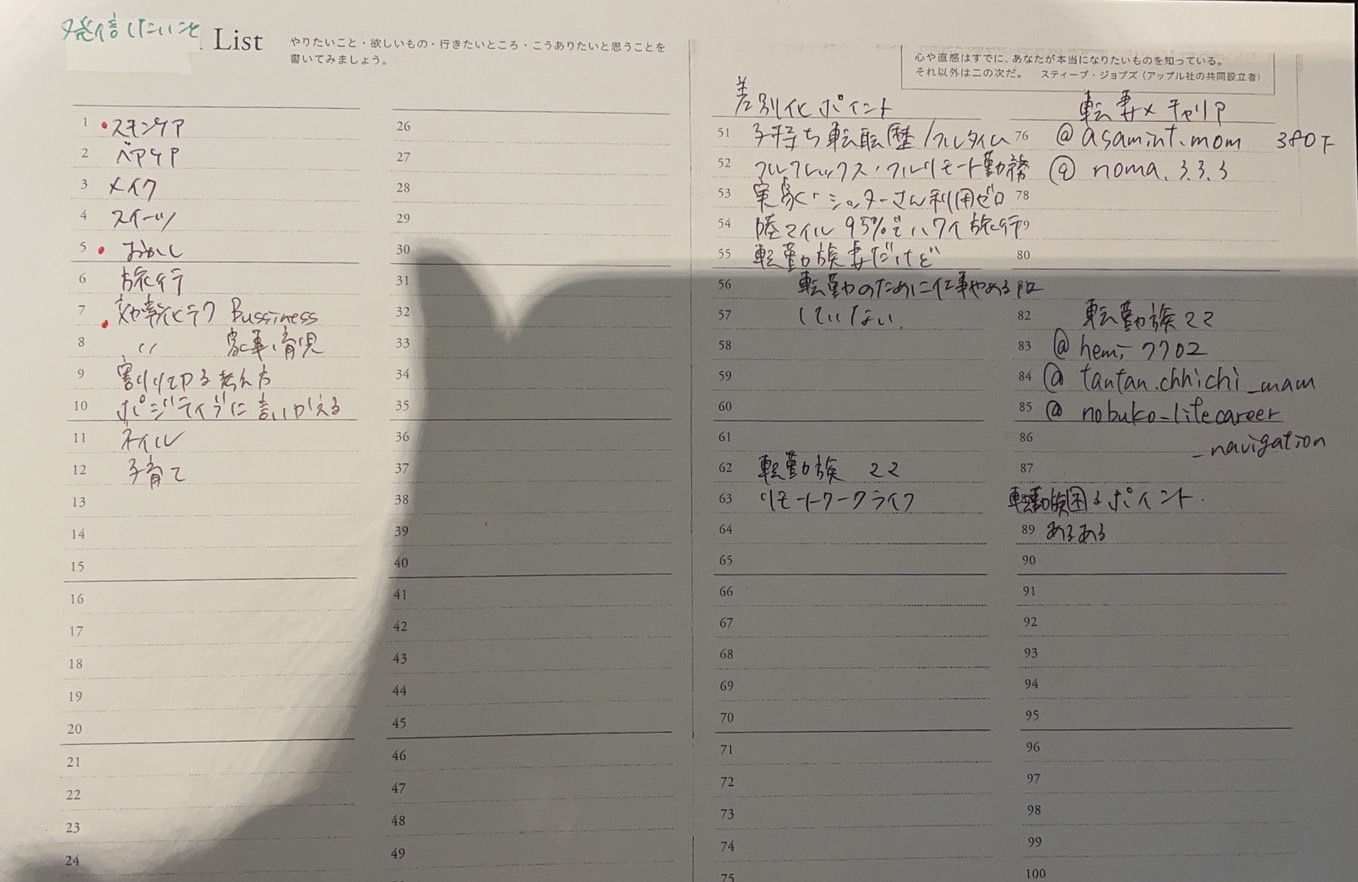 発信したいこと List
やりたいこと・欲しいもの・行きたいところ・こうありたいと思うことを
書いてみましょう。
心や直感はすでに、あなたが本当になりたいものを知っている。
それ以外は二の次だ。 スティーブ・ジョブズ(アップル社の共同設立者)
1 スキンケア
2 ヘアケア
3 メイク
4 スイーツ
5 おかし
6 旅行
7 効率化テク Bussiness
8 〃 家事・育児
9 割り切る考え方
10 ポジティブに言いかえる
11 ネイル
12 子育て
13
14
15
16
17
18
19
20
21
22
23
24
26
27
28
29
30
31
32
33
34
35
36
37
38
39
40
41
42
43
44
45
46
47
48
49
差別化ポイント
51 子持ち転転歴/フルタイム
52 フルフレックス・フルリモート勤務
53 実家・シッターさん利用ゼロ
54 陸マイル95%でハワイ旅行
55 転勤族妻だけど
56 転勤のために仕事やめる
57 していない。
58
59
60
61
62 転勤族ママ
63 リモートワークライフ
64
65
66
67
68
69
70
71
72
73
74
75
転妻×キャリア
76 @asamint.mom
@ noma.3.3.3
78
79
80
82 転勤族ママ
83 @hemi-7702
84 @tantan.chhichi_mam
85 @nobuko-lifecareer
86 -navigation
87
転勤族困るポイント.
89 あるある
90
91
92
93
94
95
96
97
98
99
100